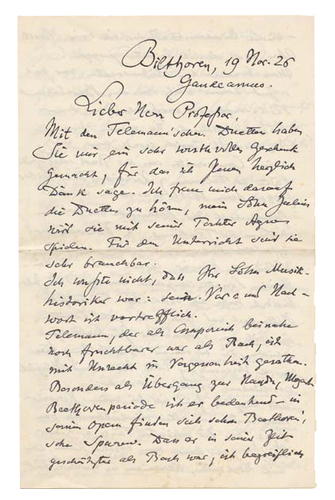 Bilthoven, 19 Nov. 26
Gaudeamus.
Lieber Herr Professor,
Mit den Telemann'schen Duetten haben
Sie mir ein sehr wertvolles Geschenk
gemacht, für das ich Ihnen herzlich
Dank sage. Ich freue mich darauf
die Duetten zu hören, mein Sohn Julius
wird sie mit seiner Tochter Agnes
spielen. Für den Unterricht sind sie
sehr brauchbar.
Ich wusste nicht, dass Ihr Sohn Musik-
historiker war: sein Vor- und Nach-
wort ist vortrefflich.
Telemann, der als Componist beinahe
noch fruchtbarer war als Bach, ist
mit Unrecht in Vergessenheit geraten.
Besonders als Übergang zur Haydn, Mozart,
Beethovenperiode ist er bedeutend – in
seinen Opern finden sich schon Beethoven'
sche Spuren. Dass er in seiner Zeit
geschätzter als Bach war, ist begreiflich